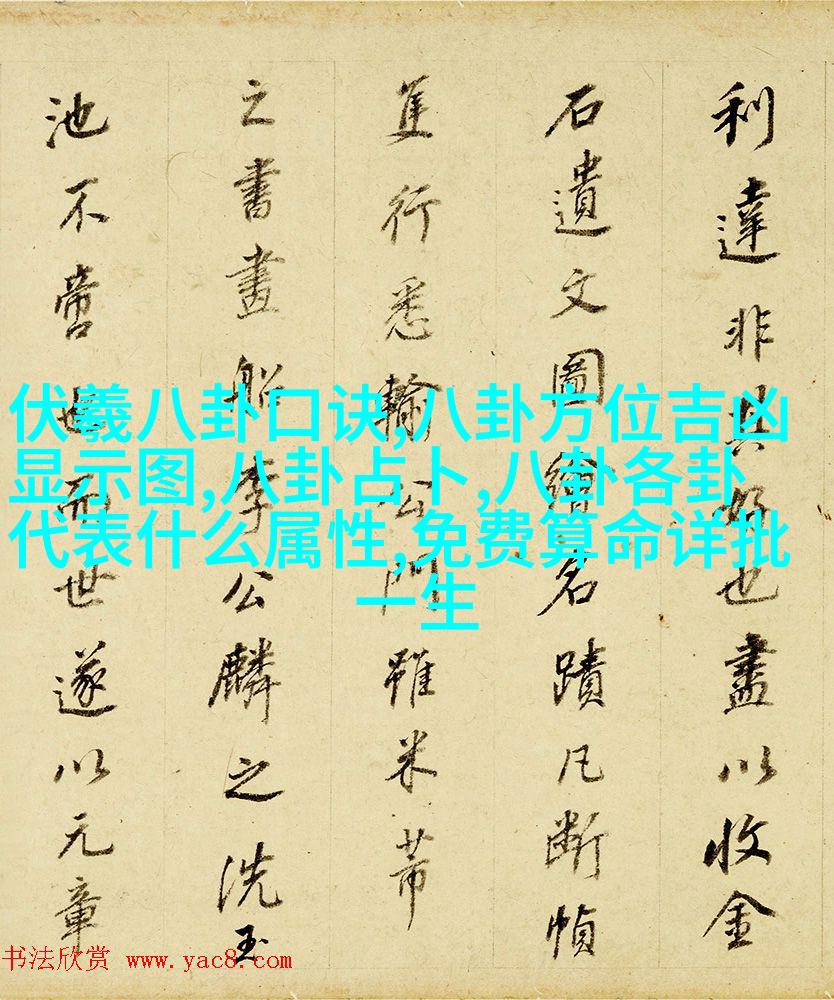 利達非其好也盡以收金
石遺文圖繪名蹟凡斷幀
隻行悉輸公門雖米芾
之書畫船李公麟之洗玉
池不啻也而世遂以元章
伏羲八卦口诀,八卦方位吉凶
显示图,八卦占卜,八卦各卦
代表什么属性,免费算命详批
一生
书法欣赏 www.yac8.com